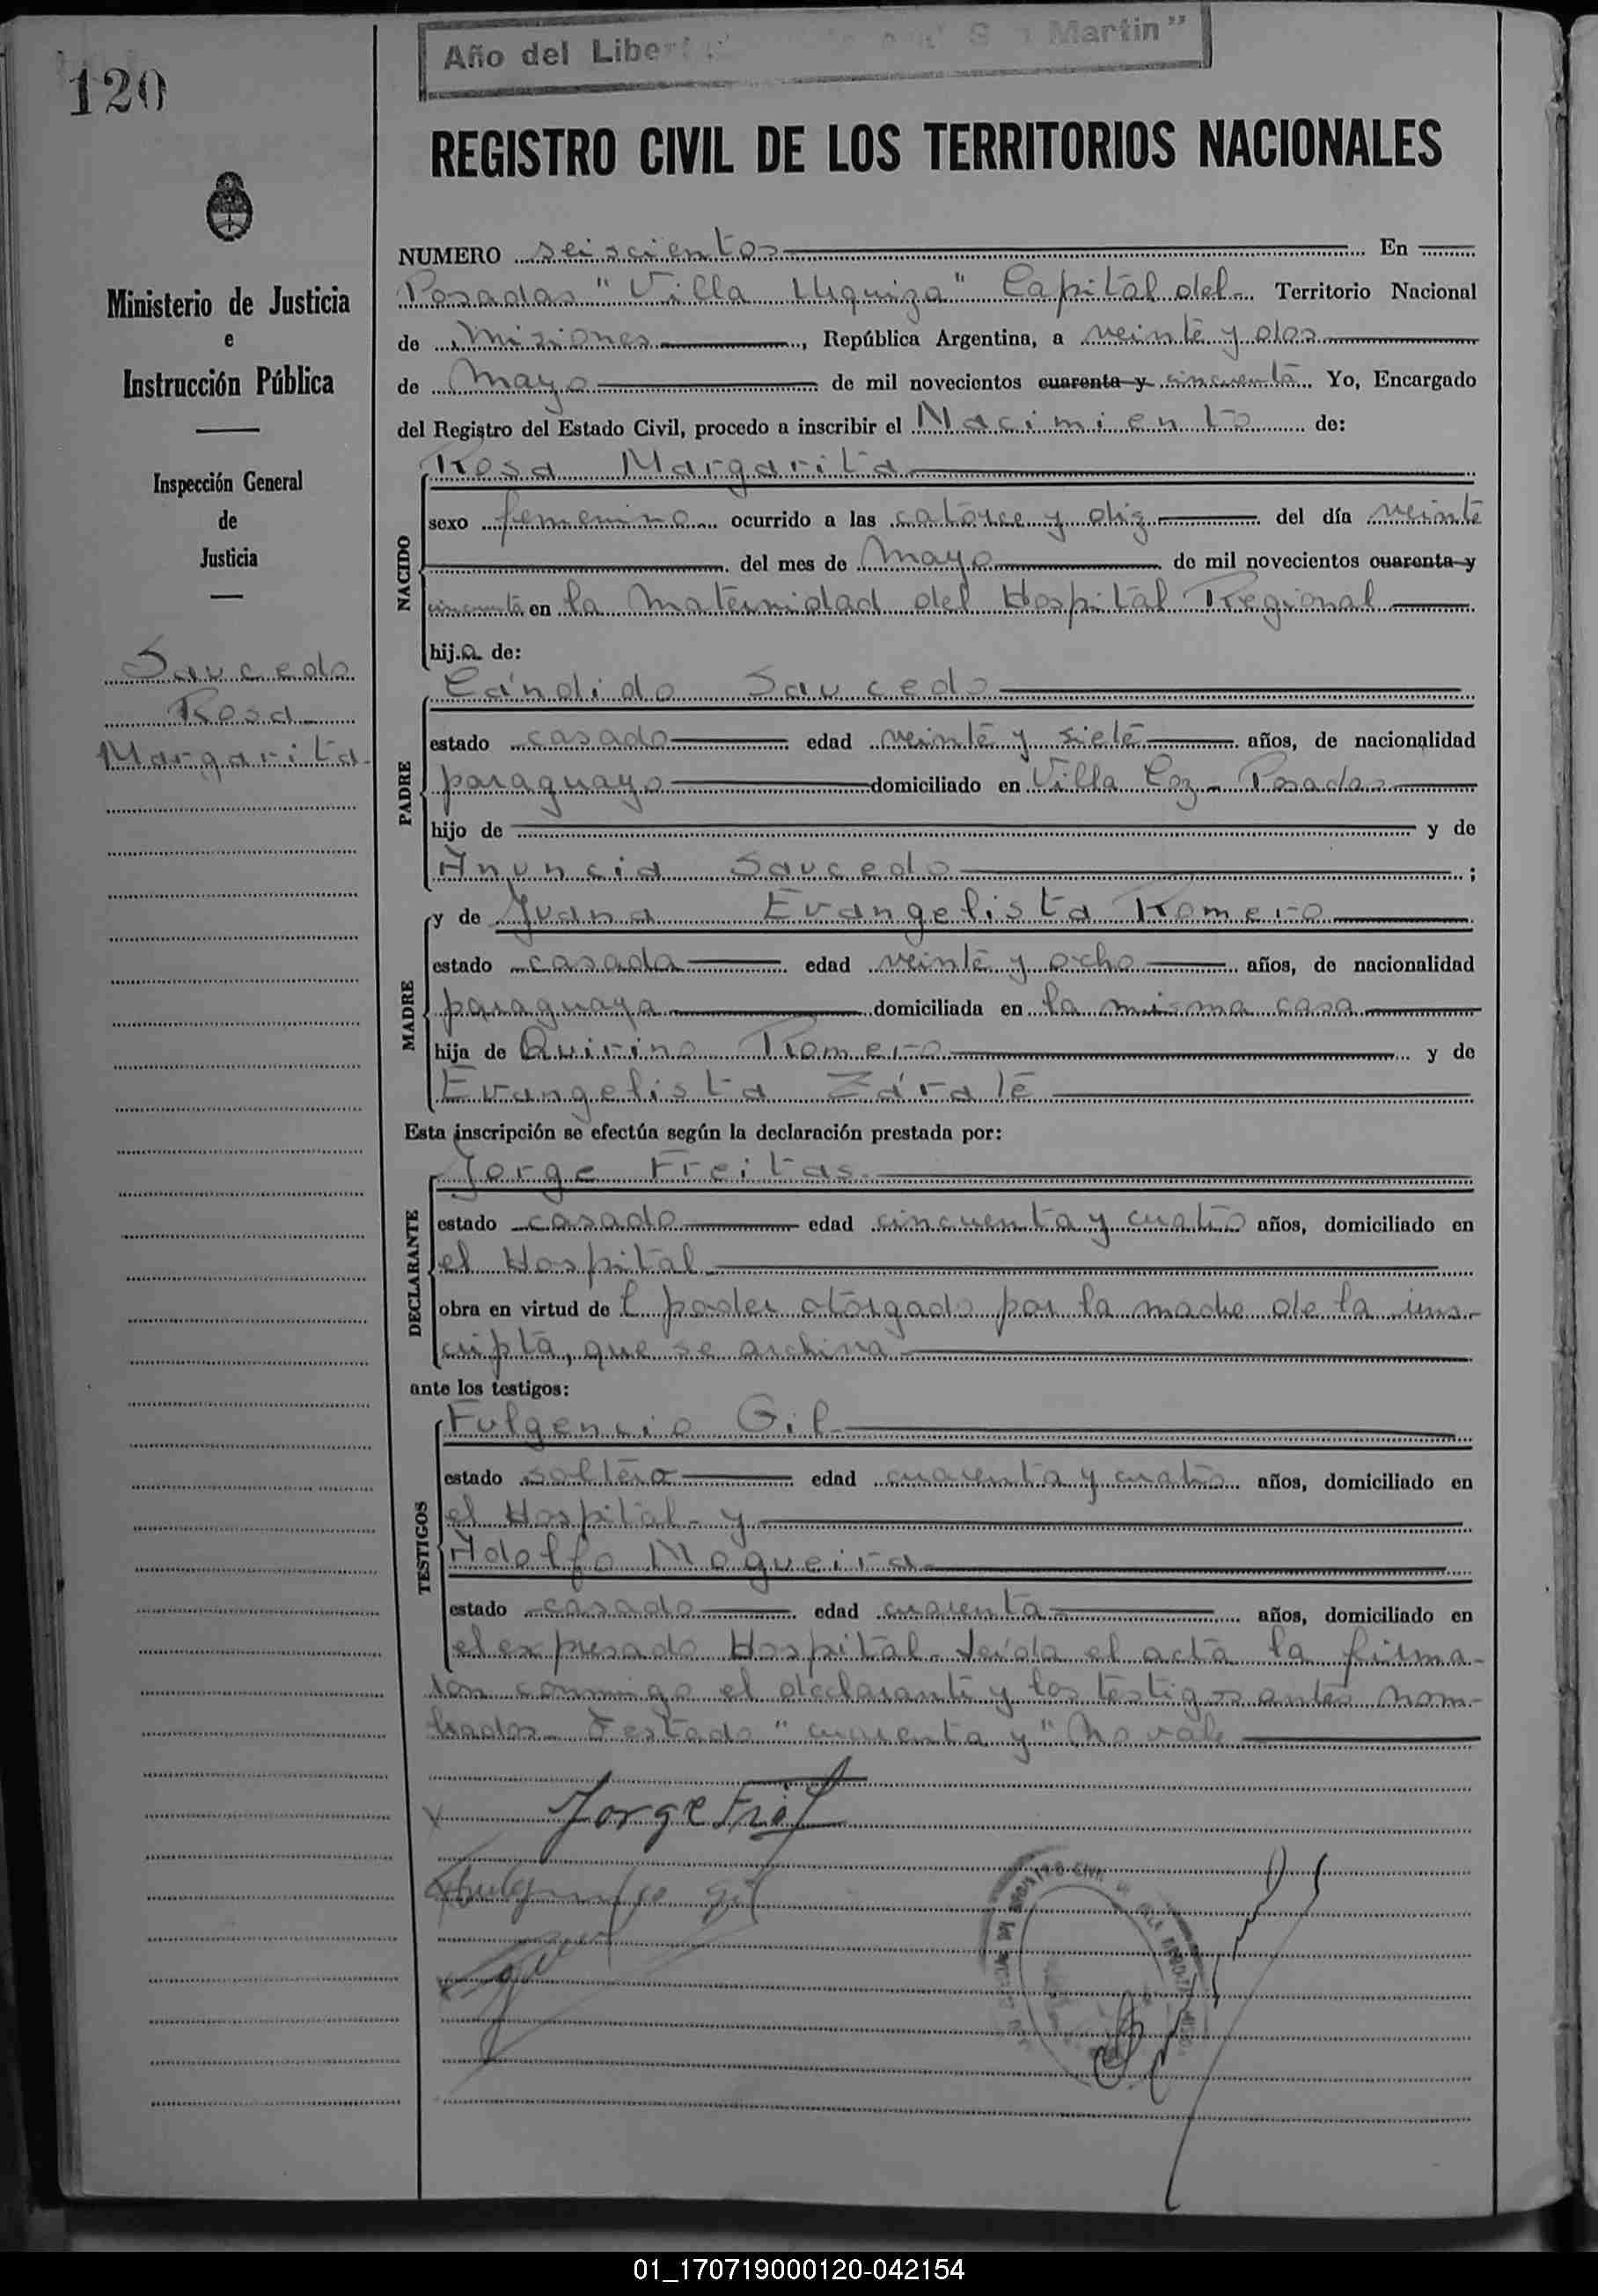 120
Año del Libert Martin"
REGISTRO CIVIL DE LOS TERRITORIOS NACIONALES
Ministerio de Justicia
e
Instrucción Pública
Inspección General
de
Justicia
Saucedo
Rosa
Margarita
NUMERO seiscientos En
Posadas "Villa Urquiza" Capital del Territorio Nacional
de Misiones, República Argentina, a veinte y dos
de Mayo de mil novecientos cuarenta y cincuenta Yo, Encargado
del Registro del Estado Civil, procedo a inscribir el Nacimiento de:
NACIDO
Rosa Margarita
sexo femenino ocurrido a las catorce y diez del día veinte
del mes de Mayo de mil novecientos cuarenta y
cincuenta en la Maternidad del Hospital Regional
hija de:
PADRE
Cándido Saucedo
estado casado edad veinte y siete años, de nacionalidad
paraguayo domiciliado en Villa Coz - Posadas
hijo de y de
Anuncia Saucedo ;
MADRE
y de Juana Evangelista Romero
estado casada edad veinte y ocho años, de nacionalidad
paraguaya domiciliada en la misma casa
hija de Quirino Romero y de
Evangelista Zárate
Esta inscripción se efectúa según la declaración prestada por:
DECLARANTE
Jorge Freitas
estado casado edad cincuenta y cuatro años, domiciliado en
el Hospital
obra en virtud de l poder otorgado por la madre de la ins-
cripta, que se archiva
ante los testigos:
TESTIGOS
Fulgencio Gil
estado soltero edad cuarenta y cuatro años, domiciliado en
el Hospital - y
Adolfo Nogueira
estado casado edad cuarenta años, domiciliado en
el expresado Hospital - Leída el acta la firma-
ron conmigo el declarante y los testigos antes nom-
brados - Testado "cuarenta y" No vale
Jorge Freit
Fulgencio Gil
01_170719000120-042154